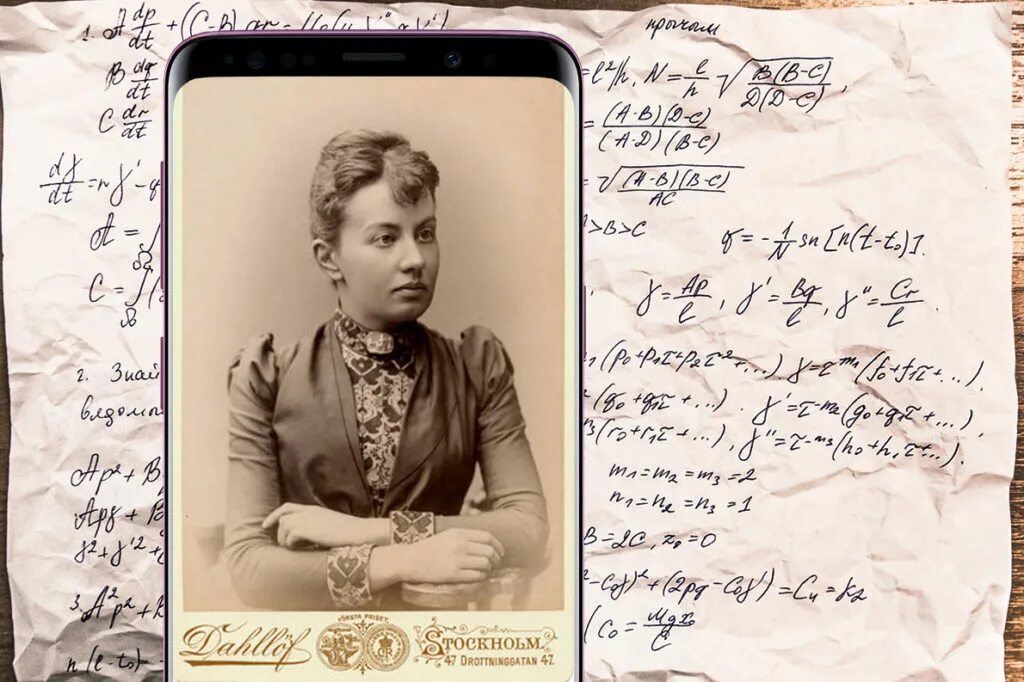 1. A dp/dt + (C-B) qr =
B dq/dt
C dr/dt
dγ/dt = rγ' - q
A = ∫
C = ∫
2. Знай
вядомы
Ap² + B
Apγ + B
γ² + γ'² +
3. A²p² +
n(t-t₀) -
прычым
= l²/h, N = l/h √(B(B-C)/D(D-C)),
= (A-B)(D-C)/(A-D)(B-C)
= √((A-B)(B-C)/AC)
>B>C
q = -1/N sn[n(t-t₀)].
γ = Ap/l, γ' = Bq/l, γ'' = Cr/l.
(p₀+p₁τ+p₂τ²+...) γ = τ⁻ᵐ¹(f₀+f₁τ+...),
(q₀+q₁τ+...), γ' = τ⁻ᵐ²(g₀+g₁τ+...),
(r₀+r₁τ+...), γ'' = τ⁻ᵐ³(h₀+h₁τ+...).
m₁=m₂=m₃=2
n₁=n₂=n₃=1
B=2C, z₀=0
-C₀γ)² + (2pq-C₀γ')² = C₄ =
(C₀ = Mgx₀/C
FÖRSTA PRISET
Dahllöf
STOCKHOLM.
47 DROTTNINGGATAN 47.